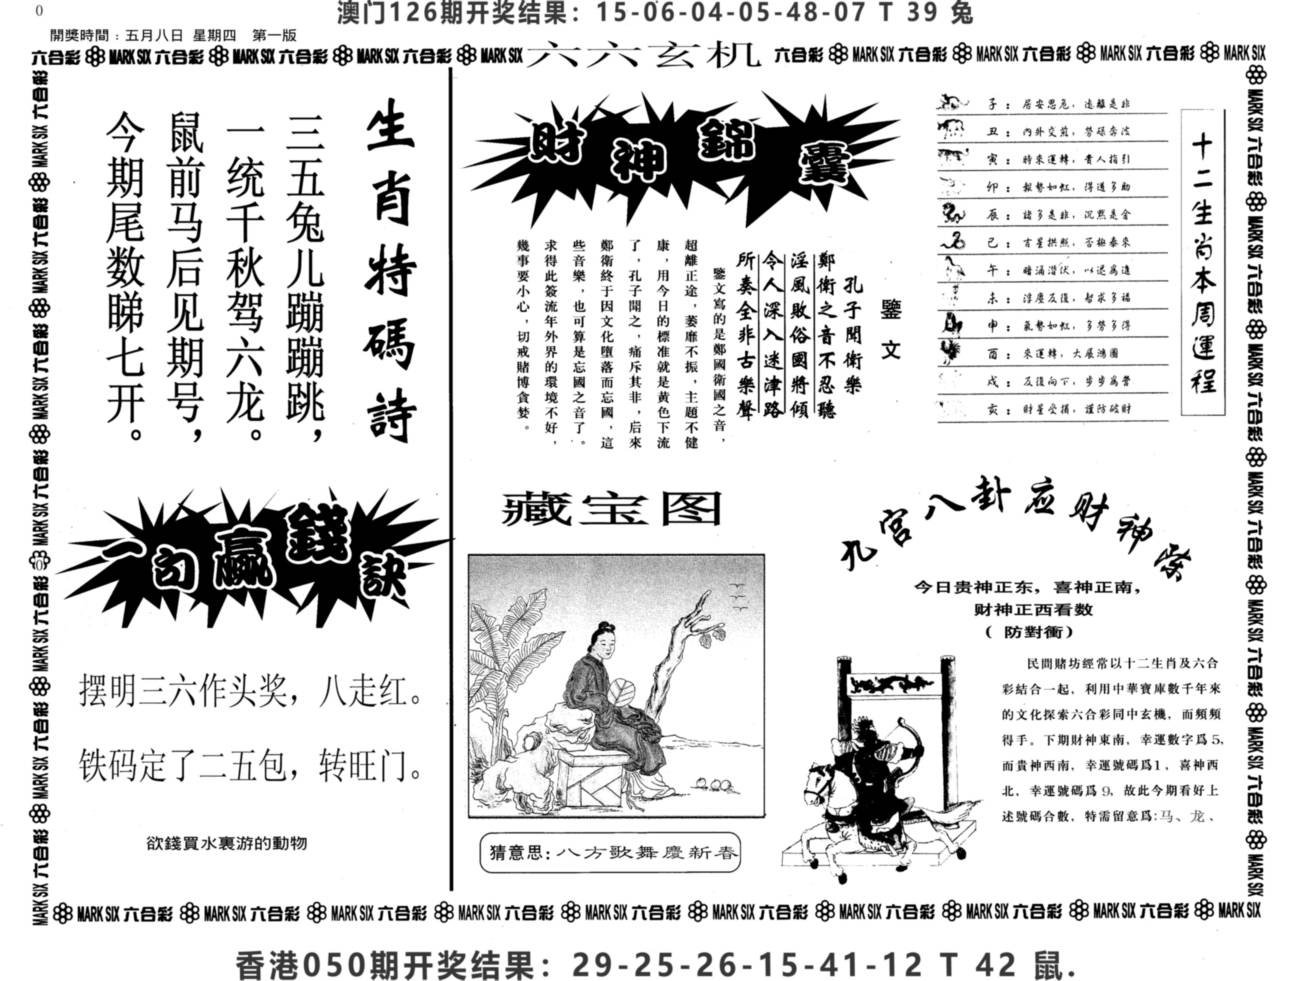 0
澳门126期开奖结果：15-06-04-05-48-07 T 39 兔
開獎時間：五月八日 星期四 第一版
六合彩 MARK SIX 六合彩 MARK SIX 六合彩 MARK SIX 六合彩 MARK SIX 六六玄机 六合彩 MARK SIX 六合彩 MARK SIX 六合彩 MARK SIX 六合彩 MARK SIX
生肖特碼詩
三五兔儿蹦蹦跳，
一统千秋驾六龙。
鼠前马后见期号，
今期尾数睇七开。
一句贏錢訣
摆明三六作头奖，八走红。
铁码定了二五包，转旺门。
欲錢買水裏游的動物
財神錦囊
鑒文
孔子聞衛樂
鄭衛之音不忍聽
淫風敗俗國將傾
令人深入迷津路
所奏全非古樂聲
鑒文寫的是鄭國衛國之音，
超離正途，萎靡不振，主題不健
康，用今日的標准就是黄色下流
了，孔子聞之，痛斥其非，后來
鄭衛終于因文化墮落而忘國，這
些音樂，也可算是忘國之音了。
求得此簽流年外界的環境不好，
幾事要小心，切戒賭博貪婪。
十二生肖本周運程
子：居安思危，遠離是非
丑：内外交煎，勞碌奔波
寅：時來運轉，貴人指引
卯：報勢如虹，得道多助
辰：諸多是非，沉黙是金
巳：吉星拱照，否極泰來
午：暗涌潜伏，以退爲進
未：浮塵反復，智求多福
申：氣勢如虹，多勞多得
酉：來運轉，大展鴻圖
戌：反復向下，步步爲營
亥：財星受損，謹防破財
藏宝图
猜意思：八方歌舞慶新春
九宫八卦应财神
今日贵神正东，喜神正南，
财神正西看数
（防對衝）
民間賭坊經常以十二生肖及六合
彩結合一起，利用中華寶庫數千年來
的文化探索六合彩同中玄機，而頻頻
得手。下期財神東南，幸運數字爲5，
而貴神西南，幸運號碼爲1，喜神西
北，幸運號碼爲9，故此今期看好上
述號碼合數，特需留意爲：马、龙、
MARK SIX 六合彩 MARK SIX 六合彩 MARK SIX 六合彩 MARK SIX 六合彩 MARK SIX 六合彩 MARK SIX 六合彩 MARK SIX 六合彩 MARK SIX 六合彩 MARK SIX 六合彩 MARK SIX
香港050期开奖结果：29-25-26-15-41-12 T 42 鼠.